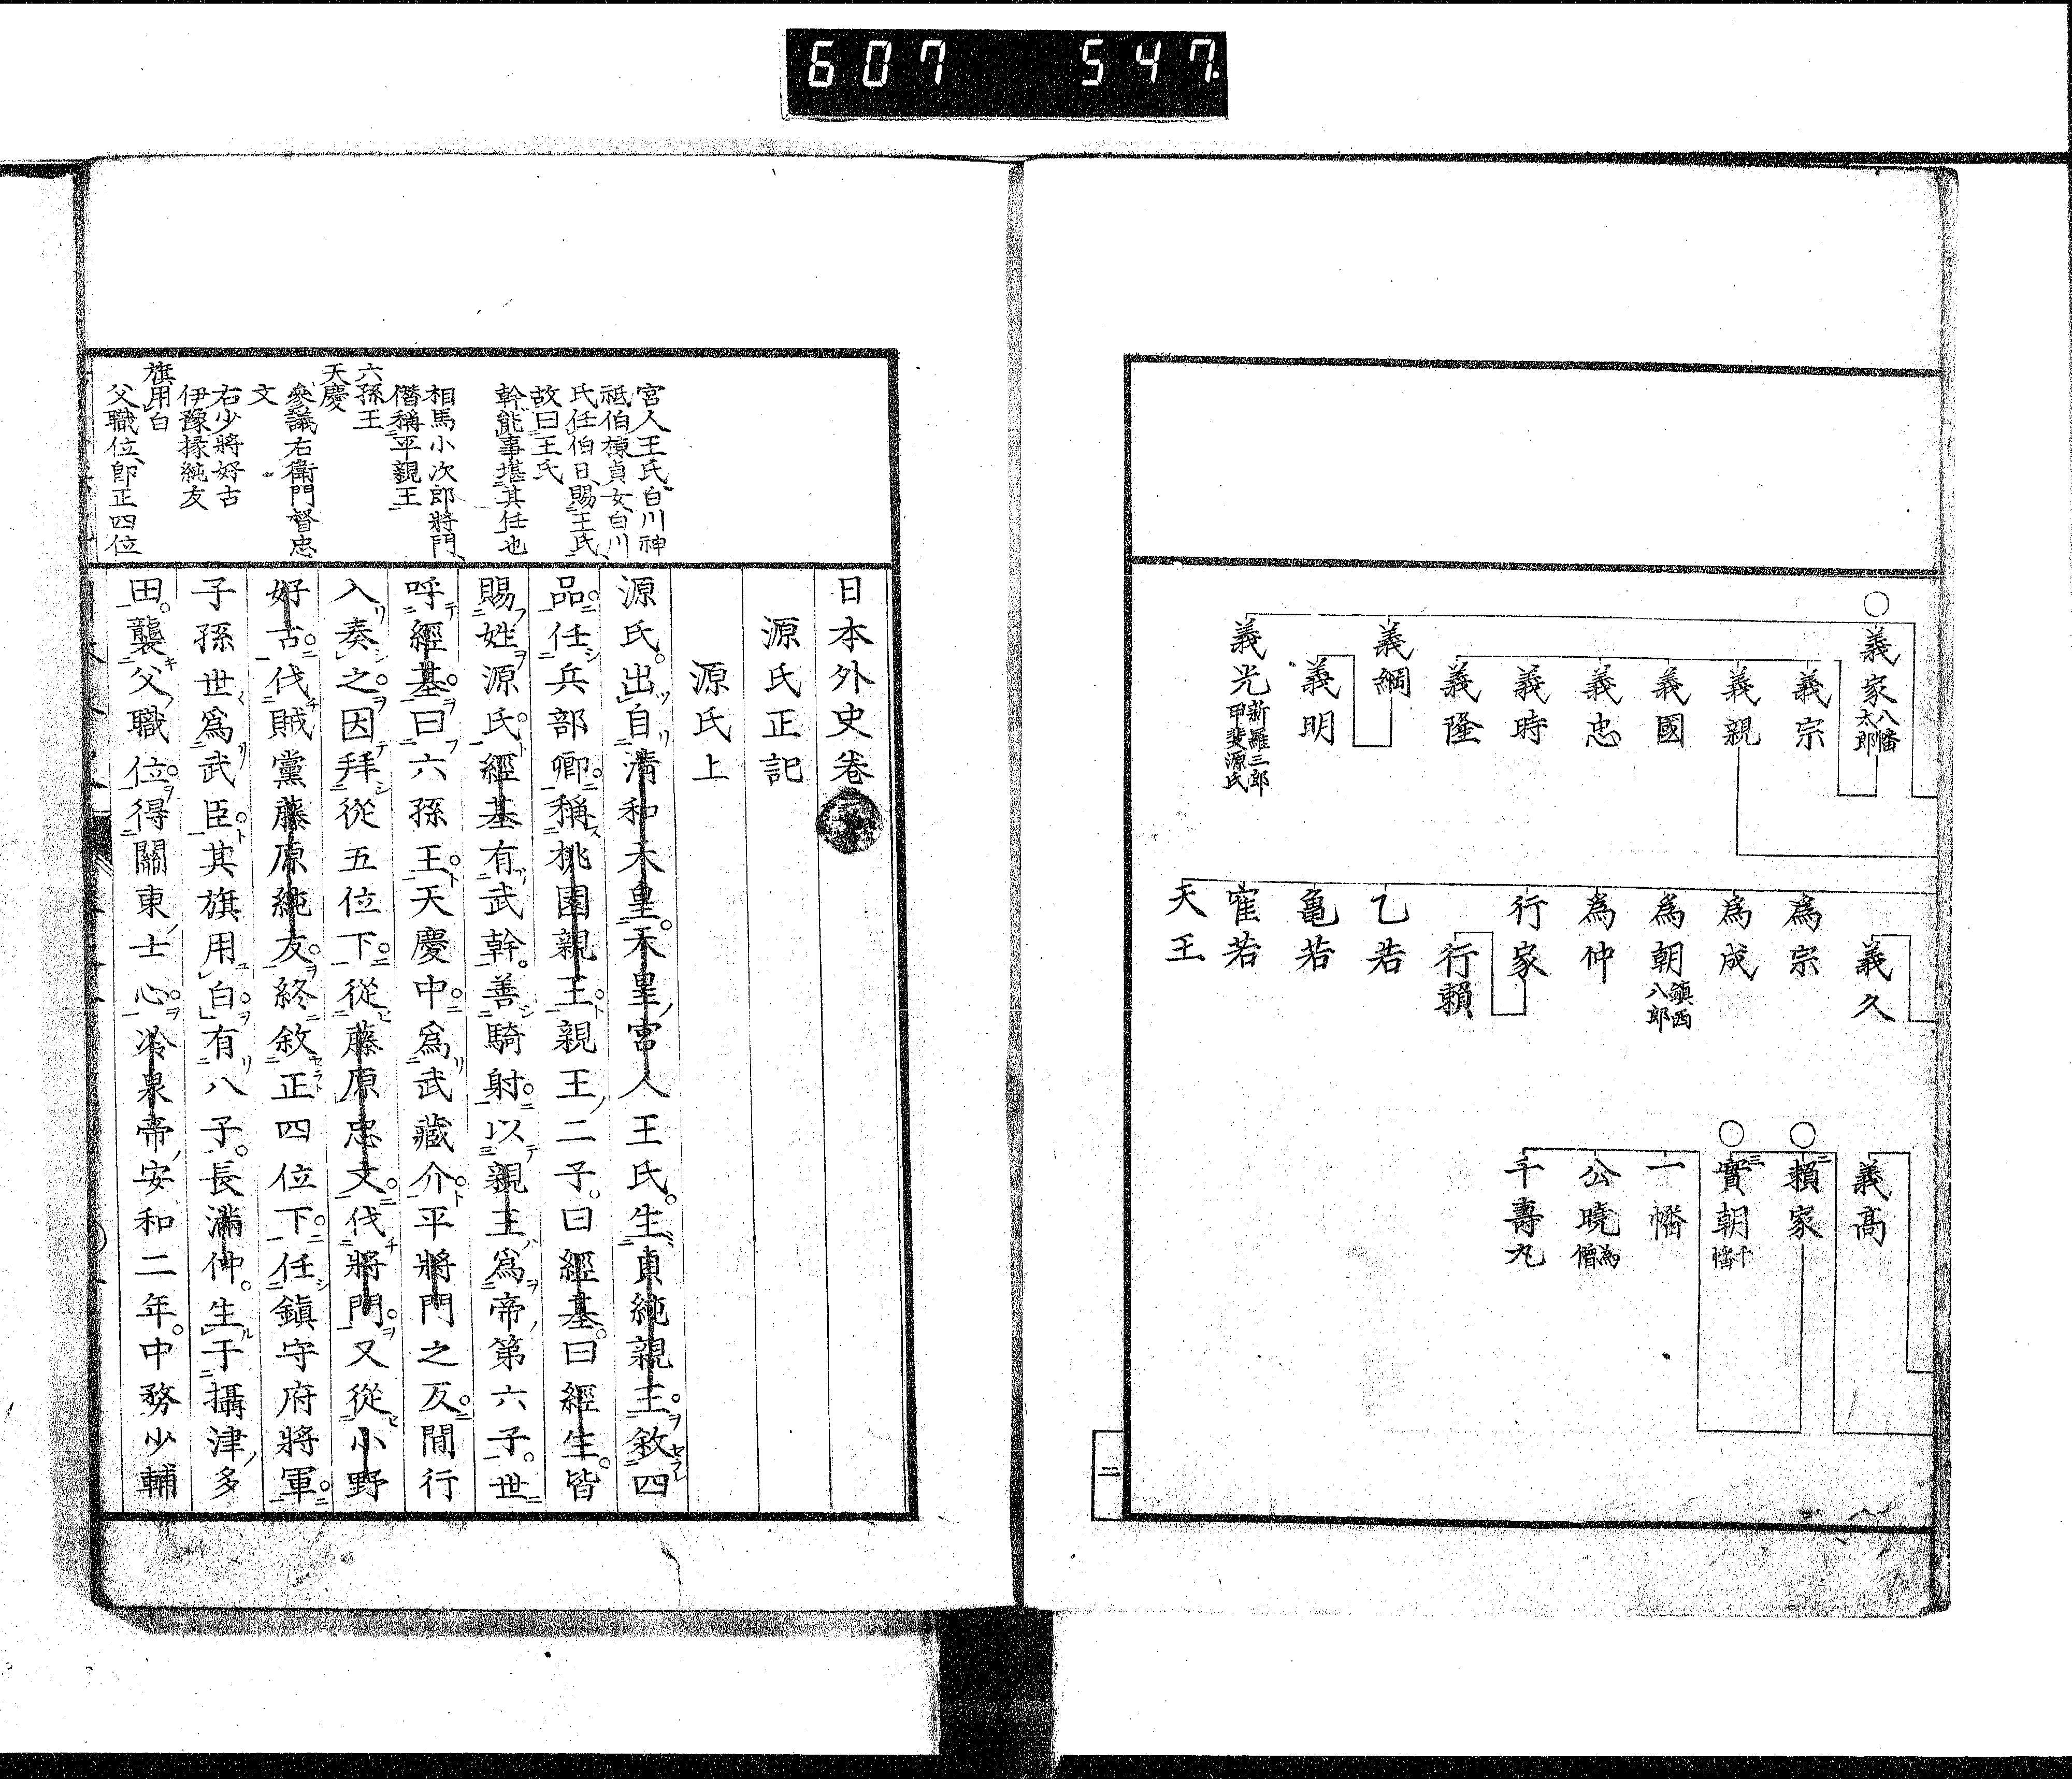 607 547.
義家 八幡太郎
義宗
義親
義國
義忠
義時
義隆
義綱
義明
義光 新羅三郎 甲斐源氏
義久
為宗
為成
為朝 鎮西八郎
為仲
行家
行賴
乙若
亀若
天王
義高
賴家 二
實朝 三 千幡
一幡
公曉 為僧
千壽丸
二
宮人王氏白川神
祗伯棟貞女白川
氏任伯日賜王氏
故曰王氏
幹能事堪其任也
相馬小次郎將門
僭稱平親王
六孫王
天慶
參議右衛門督忠
文
右少將好古
伊豫掾純友
旗用白
父職位即正四位
日本外史卷
源氏正記
源氏上
源氏出自清和天皇天皇宮人王氏生貞純親王敘四
品任兵部卿稱桃園親王親王二子曰經基曰經生皆
賜姓源氏經基有武幹善騎射以親王為帝第六子世
呼經基曰六孫王天慶中為武藏介平將門之反間行
入奏之因拜從五位下從藤原忠文伐將門又從小野
好古伐賊黨藤原純友終敘正四位下任鎮守府將軍
子孫世為武臣其旗用白有八子長滿仲生于攝津多
田襲父職位得關東士心冷泉帝安和二年中務少輔